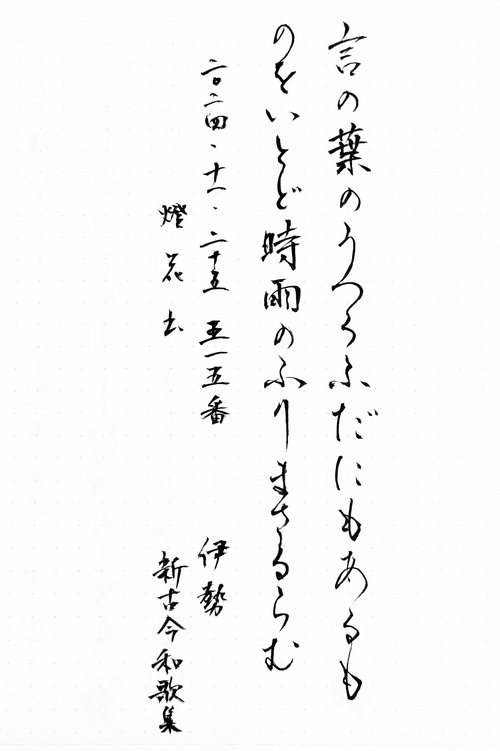 言の葉のうつろふだにもあるも
のをいとど時雨のふりまさるらむ
二〇二四・十一・二十五 五一五番
燈花书
伊勢
新古今和歌集